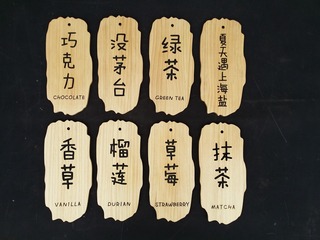 巧克力
CHOCOLATE
没茅台
绿茶
GREEN TEA
夏天遇上海盐
香草
VANILLA
榴莲
DURIAN
草莓
STRAWBERRY
抹茶
MATCHA